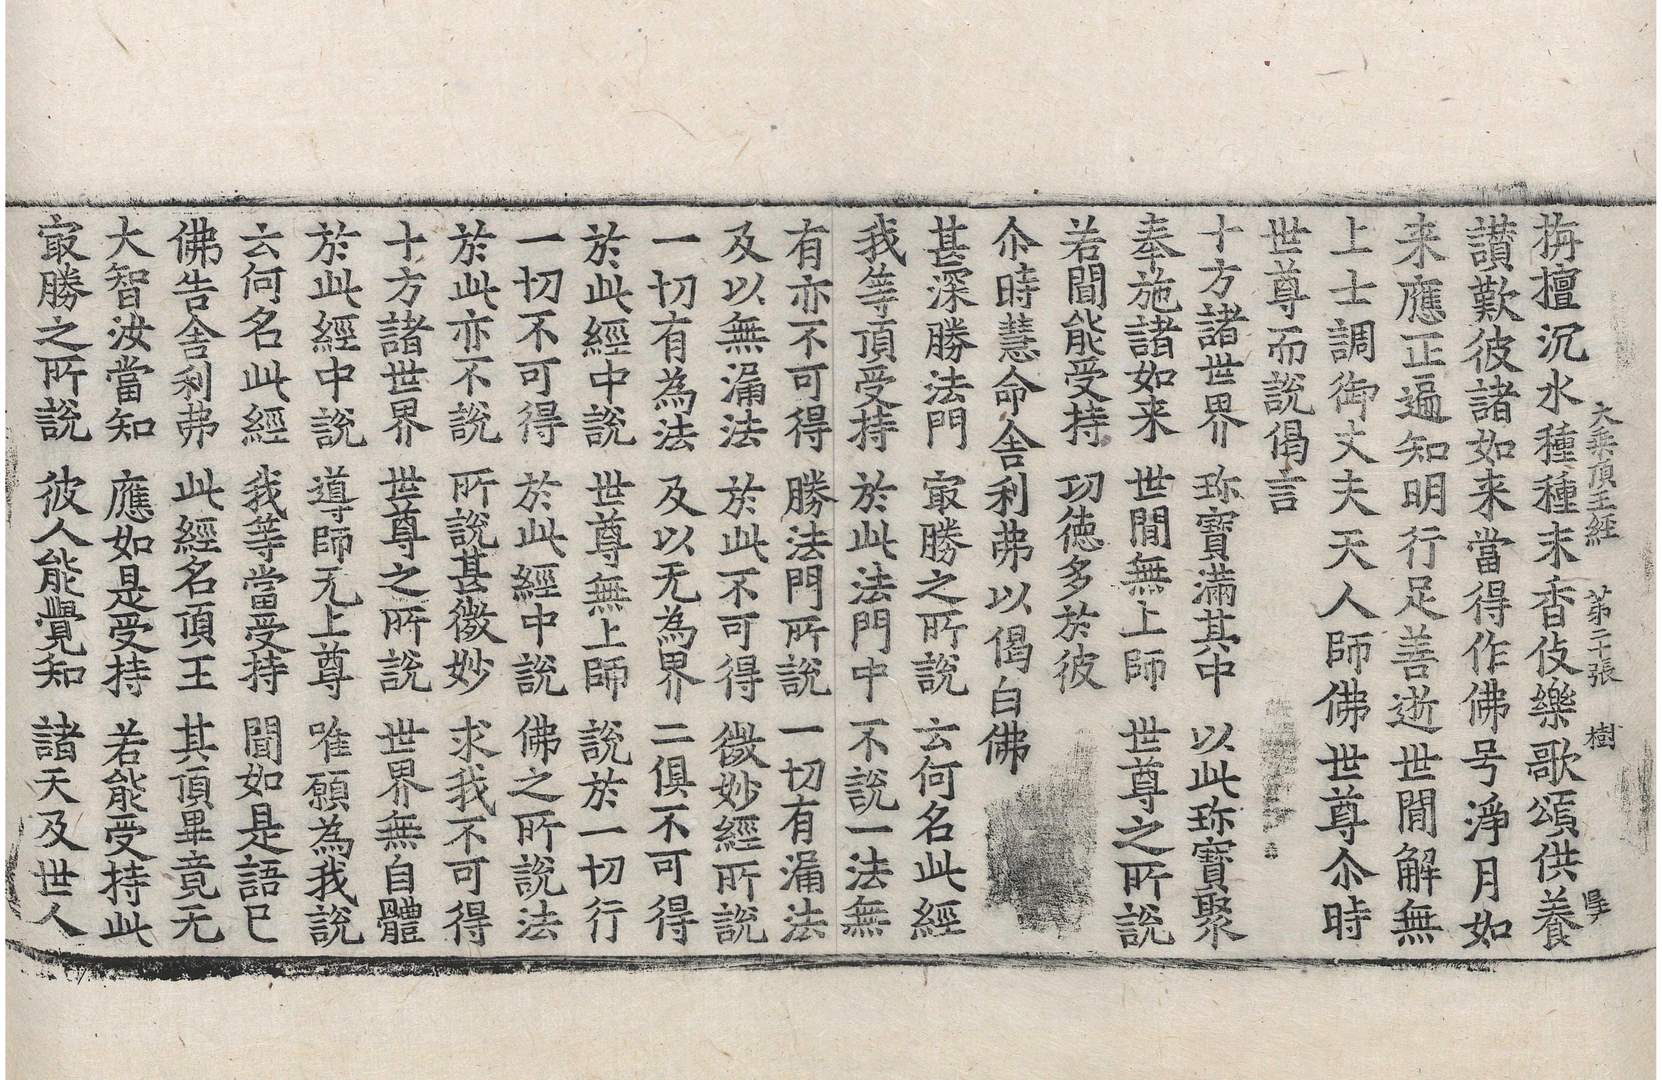 大乗頂王經 第二十張 樹
栴檀沉水種種末香伎樂歌頌供養
讃歎彼諸如来當得作佛号淨月如
来應正遍知明行足善逝世間解無
上士調御丈夫天人師佛世尊尒時
世尊而說偈言
十方諸世界 珎寶滿其中 以此珎寶聚
奉施諸如来 世間無上師 世尊之所説
若聞能受持 功德多於彼
尒時慧命舎利弗以偈白佛
甚深勝法門 㝡勝之所說 云何名此經
我等頂受持 於此法門中 不說一法無
有亦不可得 勝法門所説 一切有漏法
及以無漏法 於此不可得 微妙經所説
一切有為法 及以无為界 二俱不可得
於此經中説 世尊無上師 説於一切行
一切不可得 於此經中説 佛之所説法
於此亦不説 所說甚微妙 求我不可得
十方諸世界 世尊之所說 世界無自體
於此經中説 導師无上尊 唯願為我說
云何名此經 我等當受持 聞如是語已
佛告舎利弗 此經名頂王 其頂畢竟无
大智汝當知 應如是受持 若能受持此
㝡勝之所説 彼人能覺知 諸天及世人